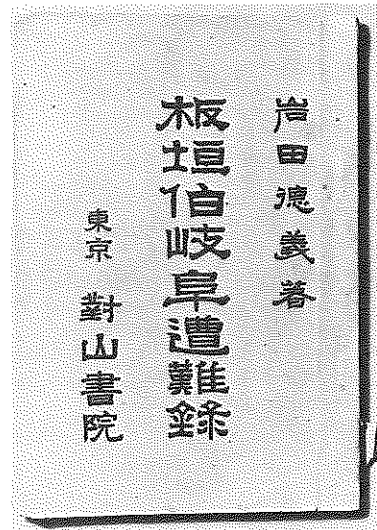 岩田德義著
板垣伯岐阜遭難錄
東京 對山書院